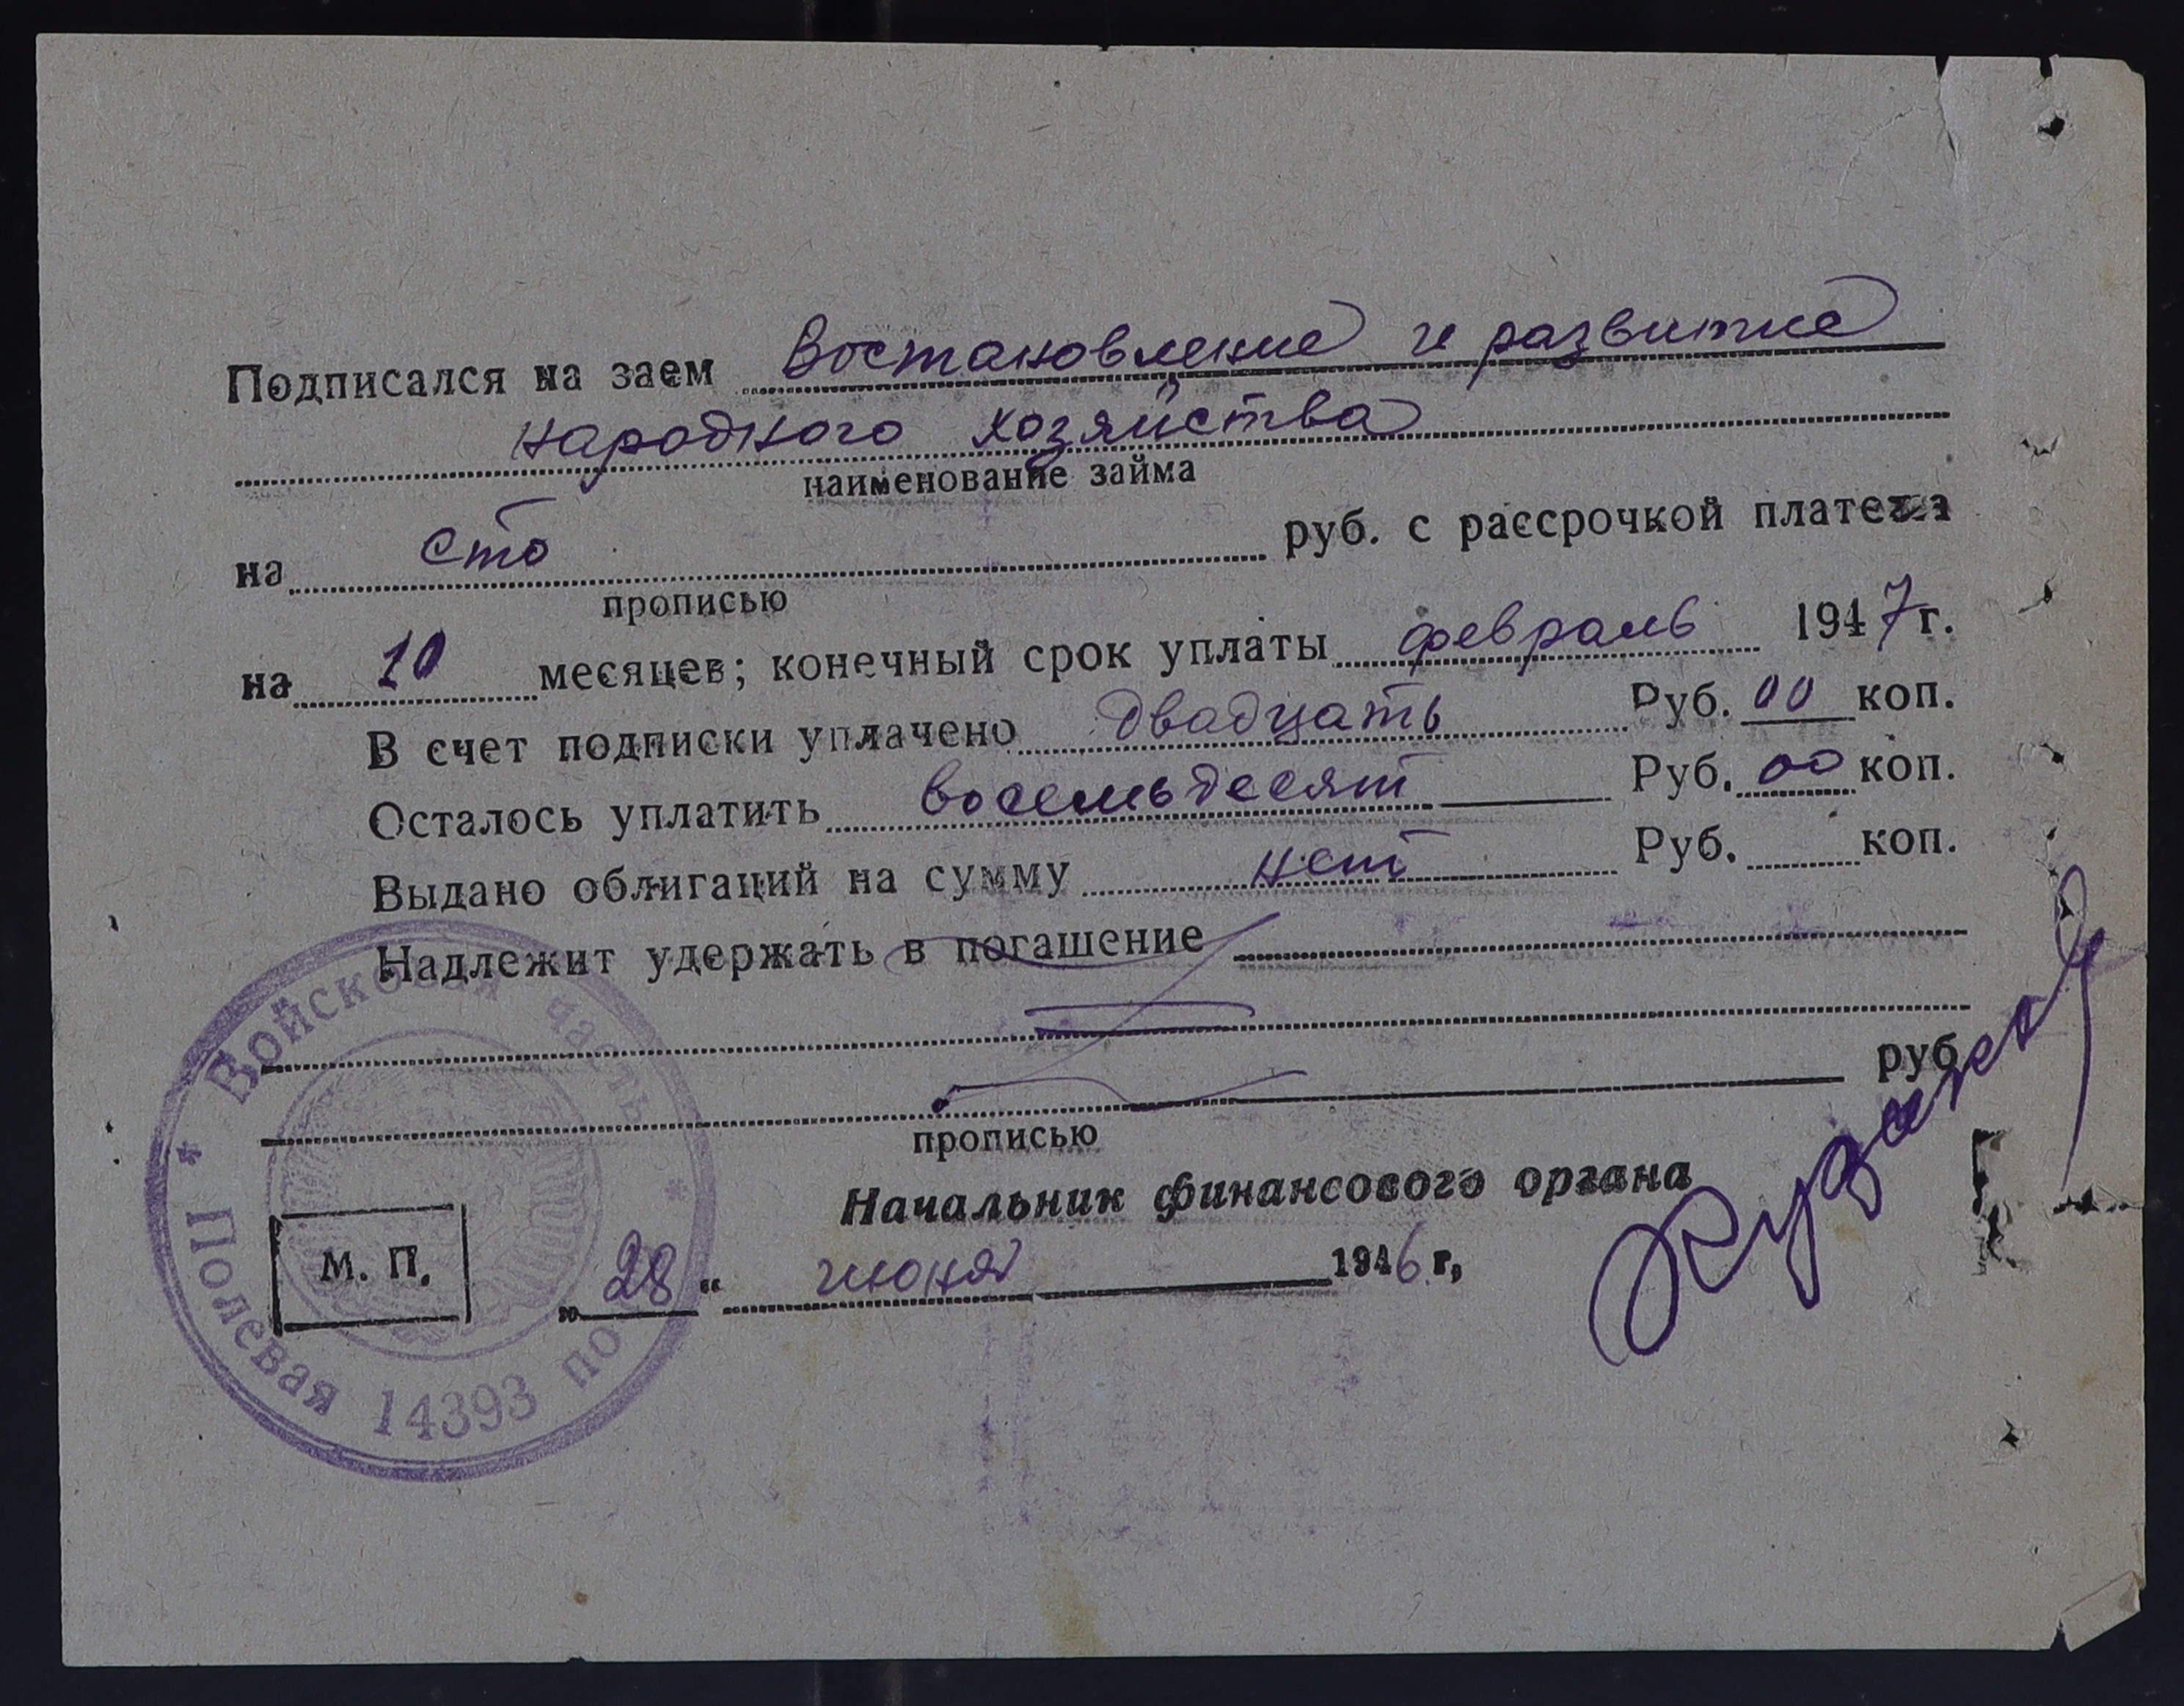 Подписался на заем Востановление и развитие
народного хозяйства
наименование займа
на сто руб. с рассрочкой платежа
прописью
на 10 месяцев; конечный срок уплаты февраль 1947 г.
В счет подписки уплачено двадцать Руб. 00 коп.
Осталось уплатить восемьдесят Руб. 00 коп.
Выдано облигаций на сумму нет Руб. коп.
Надлежит удержать в погашение
руб
прописью
Начальник финансового органа
М. П.
„28“ июня 1946 г,
* Войсковая часть *
Полевая 14393 по